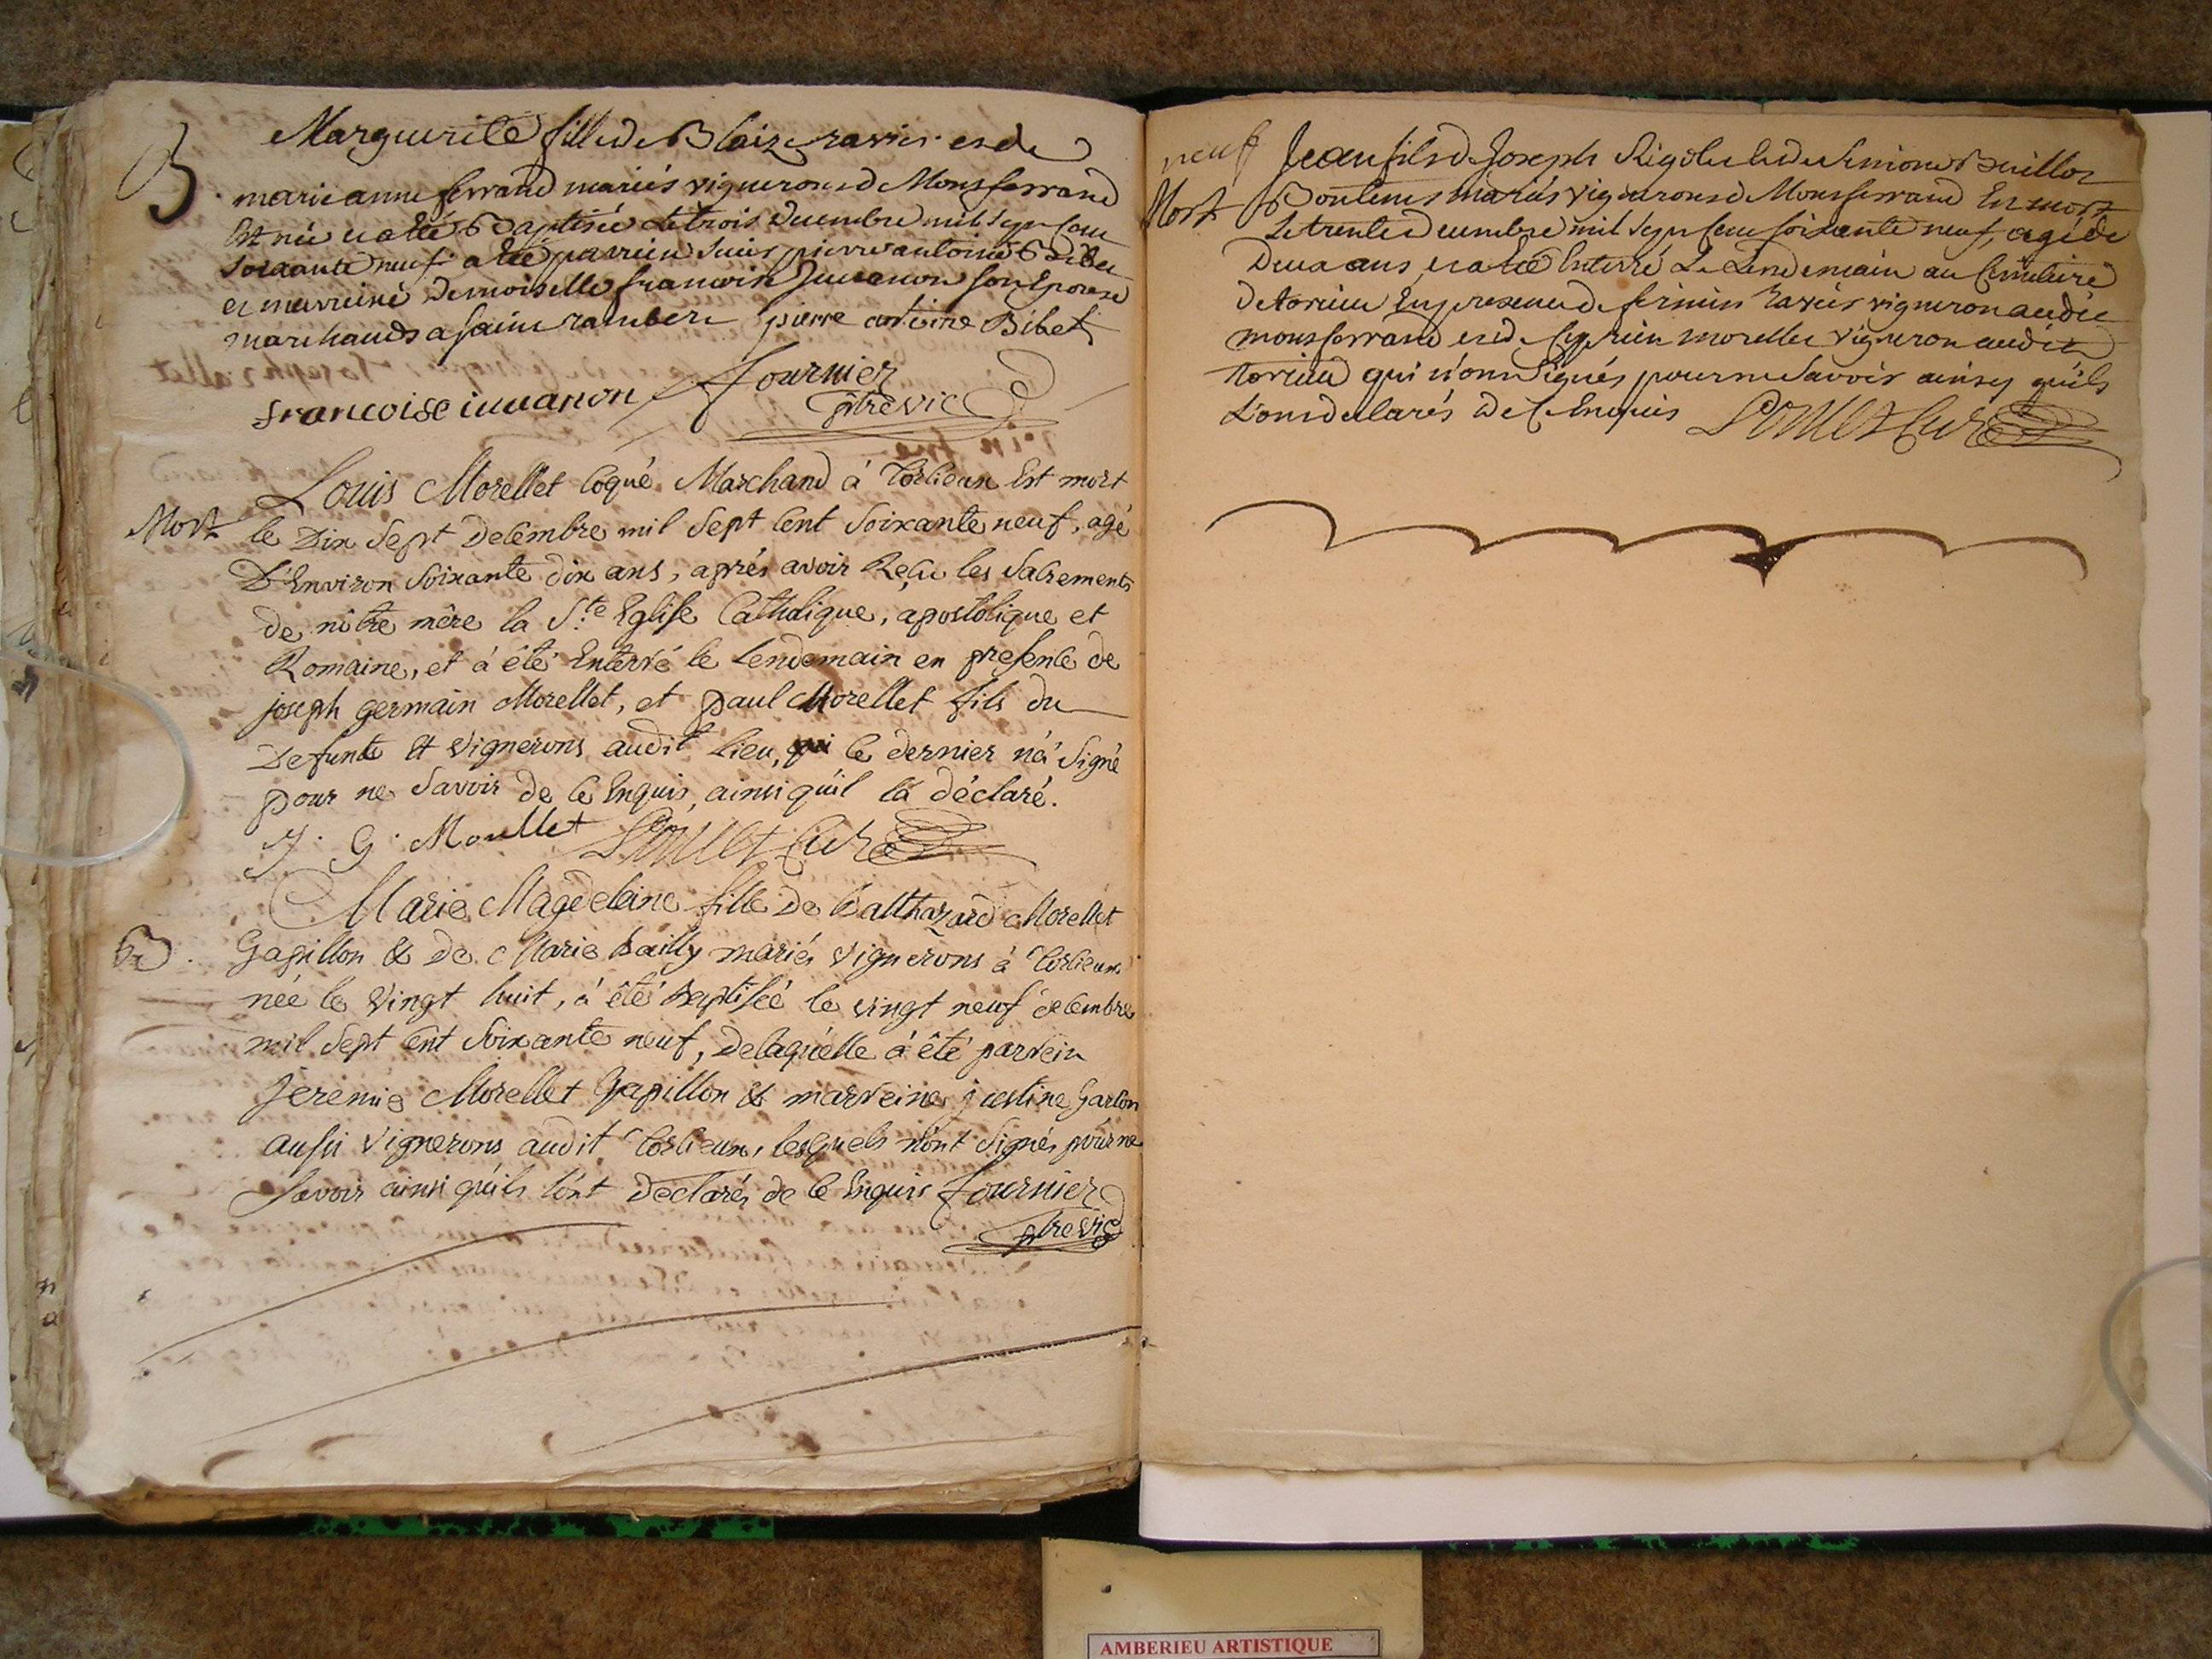 B. Marguerite fille de Blaize ravier et de
marie anne ferrand mariés vignerons de Montferrand
Est née et a été Baptisée le trois decembre mil sept cent
soixante neuf a été parrein sieur pierre antoine Bibet
et marreine demoiselle francoise juvanon son Epouse
marchands a saint rambert pierre antoine Bibet
francoise iuuanon fournier
ptre vic
Louis Morellet Coqué Marchand à Torcieux Est mort
Mort le Dix Sept Decembre mil Sept Cent Soixante neuf, agé
D'Environ Soixante dix ans, aprés avoir Reçu les Sacrements
de nôtre mère la Ste Eglise Catholique, apostolique et
Romaine, et à été Enterré le lendemain en presence de
joseph germain Morellet, et paul Morellet fils du
Defunt et vignerons audit lieu, qui le dernier n'à Signé
pour ne Savoir de ce Enquis, ainsi qu'il la déclaré.
J. G. Morellet curé
Marie Magdeleine fille de Balthazard Morellet
B. Gapillon & de Marie Bailly mariés vignerons à Torcieux
née le vingt huit, à été baptisée le vingt neuf decembre
mil Sept cent Soixante neuf, delaquelle à été parrein
Jeremie Morellet Gapillon & marreine justine Garlon
aussi vignerons audit Torcieux, lesquels n'ont Signés pour ne
Savoir ainsi qu'ils l'ont declarés de ce Enquis fournier
ptre vic
neuf Jean fils de Joseph et de
Mort mariés vignerons de Montferrand Est mort
Le trente decembre mil sept cent soixante neuf, agé de
Deux ans, et a été Enterré Le Lendemain au Cimetiere
de torcieu En presence de firmin Ravier vigneron audit
montferrand et de morellet vigneron audit
torcieu qui n'ont Signés pour ne Savoir ainsy qu'ils
L'ont declarés de Ce Enquis curé
AMBERIEU ARTISTIQUE